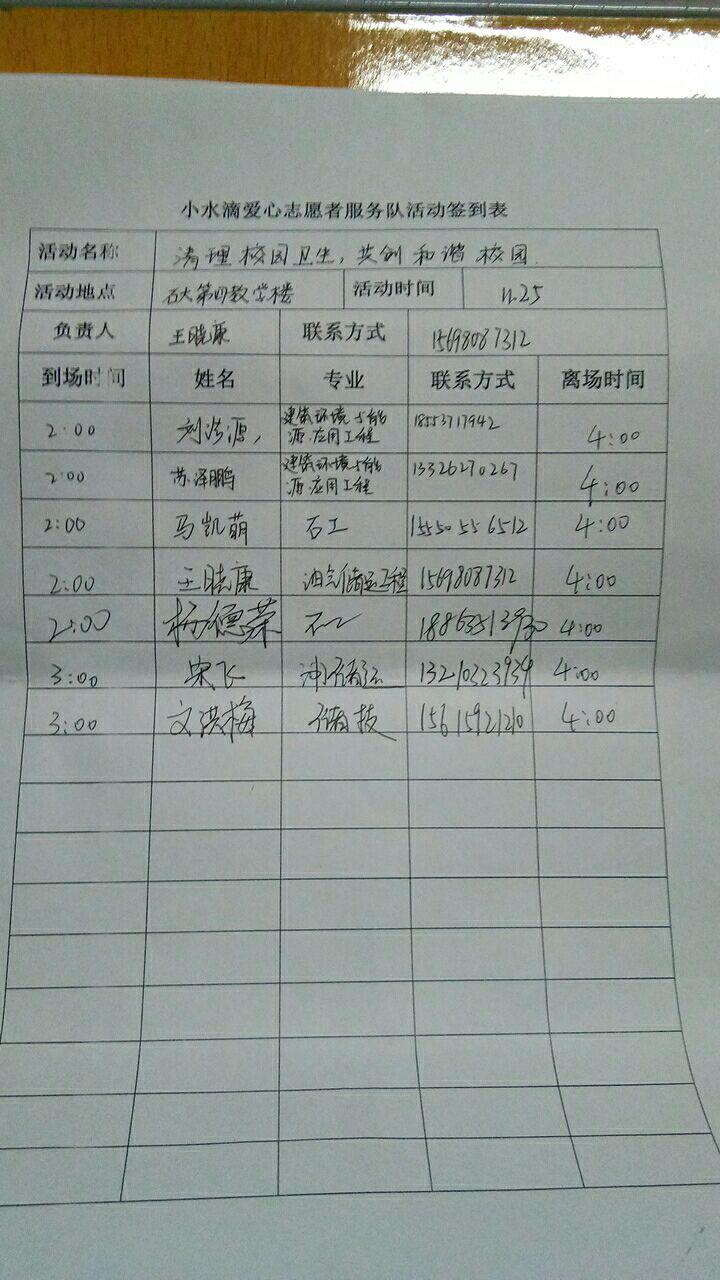 小水滴爱心志愿者服务队活动签到表
活动名称 清理校园卫生，共创和谐校园.
活动地点 石大第四教学楼 活动时间 11.25
负责人 王晓康 联系方式 15698087312
到场时间 姓名 专业 联系方式 离场时间
2:00 刘浩源 建筑环境与能源应用工程 18553717942 4:00
2:00 苏泽鹏 建筑环境与能源应用工程 13326270267 4:00
2:00 马凯萌 石工 15550556512 4:00
2:00 王晓康 油气储运工程 15698087312 4:00
2:00 杨德荣 石工 4:00
3:00 宋飞 油储运 4:00
3:00 文洪梅 储技 15615921210 4:00